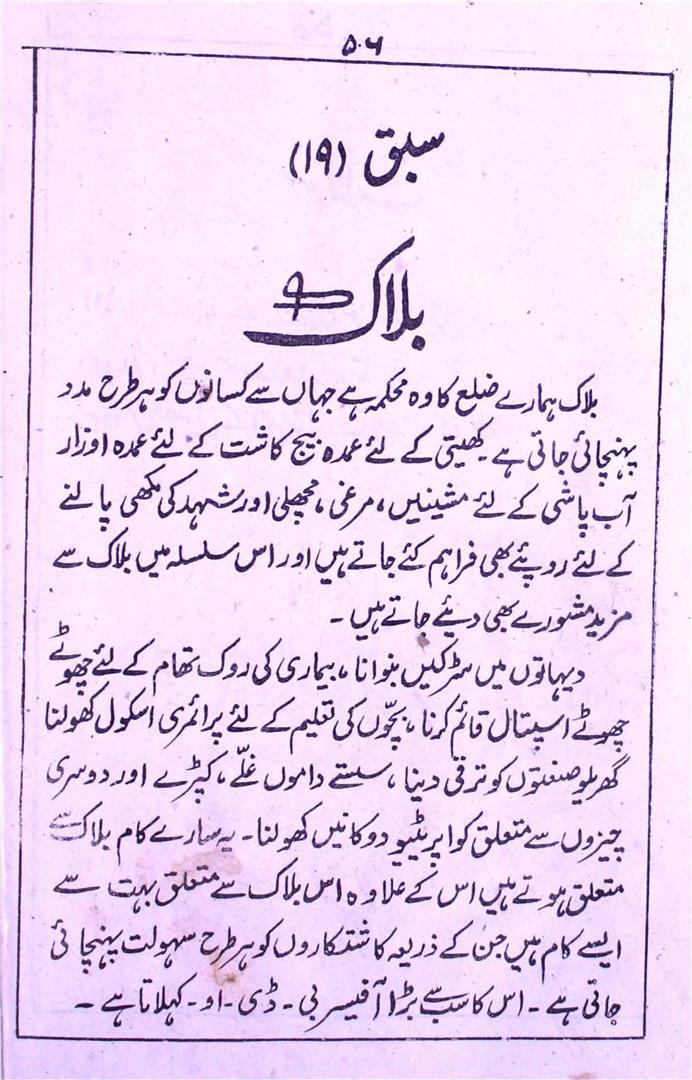 ۵۰۶
سبق (۱۹)
بلاک
بلاک ہمارے ضلع کا وہ محکمہ ہے جہاں سے کسانوں کو ہر طرح مدد
پہنچائی جاتی ہے۔ کھیتی کے لئے عمدہ بیج کاشت کے لئے عمدہ اوزار
آب پاشی کے لئے مشینیں، مرغی، مچھلی اور شہد کی مکھی پالنے
کے لئے روپئے بھی فراہم کئے جاتے ہیں اور اس سلسلہ میں بلاک سے
مزید مشورے بھی دیئے جاتے ہیں۔
دیہاتوں میں سڑکیں بنوانا، بیماری کی روک تھام کے لئے چھوٹے
چھوٹے اسپتال قائم کرنا، بچّوں کی تعلیم کے لئے پرائمری اسکول کھولنا
گھریلو صنعتوں کو ترقی دینا، سستے داموں غلّے، کپڑے اور دوسری
چیزوں سے متعلق کواپریٹیو دوکانیں کھولنا۔ یہ سارے کام بلاک سے
متعلق ہوتے ہیں اس کے علاوہ اس بلاک سے متعلق بہت سے
ایسے کام ہیں جن کے ذریعہ کاشتکاروں کو ہر طرح سہولت پہنچائی
جاتی ہے۔ اس کا سب سے بڑا آفیسر بی۔ ڈی۔ او۔ کہلاتا ہے۔